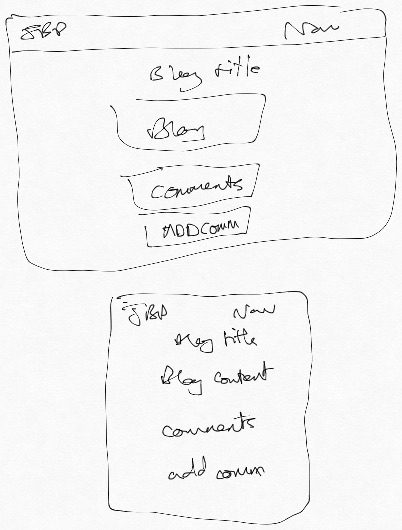 JBP Nav
Blog title
Blog
Comments
ADD Comm
JBP Nav
Blog title
Blog content
comments
add comm